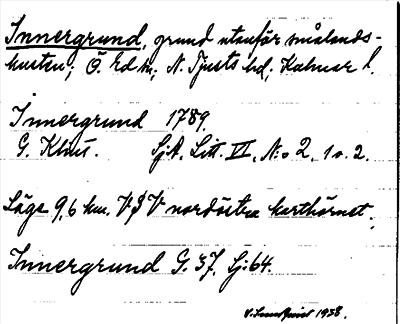 Innergrund, grund utanför smålands-
kusten; Ö. Ed sn, N. Tjusts hd, Kalmar l.
Innergrund 1789.
G. Klint. Sj.A. Litt. VI, N:o 2, 1 o. 2.
Läge 9,6 km. VSV nordöstra karthörnet.
Innergrund G. 37, Lj:64.
1938.